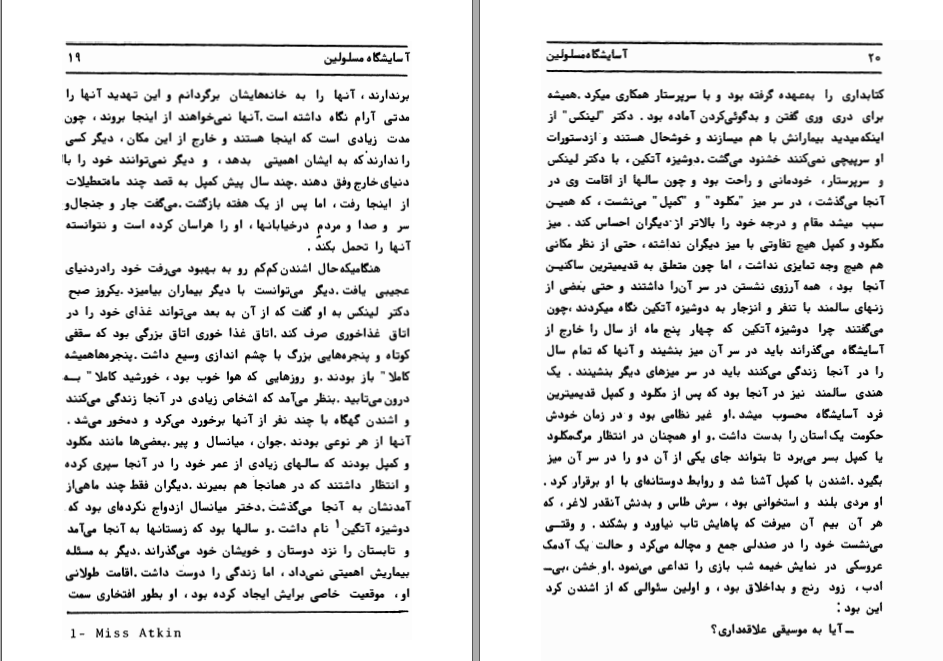 آسایشگاه مسلولین ۱۹
برندارند، آنها را به خانه‌هایشان برگردانم و این تهدید آنها را
مدتی آرام نگاه داشته است.آنها نمی‌خواهند از اینجا بروند، چون
مدت زیادی است که اینجا هستند و خارج از این مکان، دیگر کسی
را ندارند که به ایشان اهمیتی بدهد، و دیگر نمی‌توانند خود را با
دنیای خارج وفق دهند.چند سال پیش کمپل به قصد چند ماه‌تعطیلات
از اینجا رفت، اما پس از یک هفته بازگشت.می‌گفت جار و جنجال‌و
سر و صدا و مردم درخیابانها، او را هراسان کرده است و نتوانسته
آنها را تحمل بکند.
هنگامیکه‌حال اشندن کم‌کم رو به بهبود می‌رفت خود رادردنیای
عجیبی یافت.دیگر می‌توانست با دیگر بیماران بیامیزد.یکروز صبح
دکتر لینکس به او گفت که از آن به بعد می‌تواند غذای خود را در
اتاق غذاخوری صرف کند.اتاق غذا خوری اتاق بزرگی بود که سقفی
کوتاه و پنجره‌هایی بزرگ با چشم اندازی وسیع داشت.پنجره‌هاهمیشه
کاملا" باز بودند.و روزهایی که هوا خوب بود، خورشید کاملا" بـه
درون می‌تابید.بنظر می‌آمد که اشخاص زیادی در آنجا زندگی می‌کنند
و اشندن گهگاه با چند نفر از آنها برخورد می‌کرد و دمخور می‌شد.
آنها از هر نوعی بودند.جوان، میانسال و پیر.بعضی‌ها مانند مکلود
و کمپل بودند که سالهای زیادی از عمر خود را در آنجا سپری کرده
و انتظار داشتند که در همانجا هم بمیرند.دیگران فقط چند ماهی‌از
آمدنشان به آنجا می‌گذشت.دختر میانسال ازدواج نکرده‌ای بود که
دوشیزه آتگین۱ نام داشت.و سالها بود که زمستانها به آنجا می‌آمد
و تابستان را نزد دوستان و خویشان خود می‌گذراند.دیگر به مسئله
بیماریش اهمیتی نمی‌داد، اما زندگی را دوست داشت.اقامت طولانی
او، موقعیت خاصی برایش ایجاد کرده بود، او بطور افتخاری سمت
1- Miss Atkin
۲۰ آسایشگاه‌مسلولین
کتابداری را به‌عهده گرفته بود و با سرپرستار همکاری میکرد.همیشه
برای دری وری گفتن و بدگوئی‌کردن آماده بود. دکتر "لینکس" از
اینکه‌میدید بیمارانش با هم میسازند و خوشحال هستند و ازدستورات
او سرپیچی نمی‌کنند خشنود می‌گشت.دوشیزه آتکین، با دکتر لینکس
و سرپرستار، خودمانی و راحت بود و چون سالها از اقامت وی در
آنجا می‌گذشت، در سر میز "مکلود" و "کمپل" می‌نشست، که همیـن
سبب میشد مقام و درجه خود را بالاتر از دیگران احساس کند. میز
مکلود و کمپل هیچ تفاوتی با میز دیگران نداشته، حتی از نظر مکانی
هم هیچ وجه تمایزی نداشت، اما چون متعلق به قدیمیترین ساکنیـن
آنجا بود، همه آرزوی نشستن در سر آن‌را داشتند و حتی بعضی از
زنهای سالمند با تنفر و انزجار به دوشیزه آتکین نگاه میکردند،چون
می‌گفتند چرا دوشیزه آتکین که چهار پنج ماه از سال را خارج از
آسایشگاه می‌گذراند باید در سر آن میز بنشیند و آنها که تمام سال
را در آنجا زندگی می‌کنند باید در سر میزهای دیگر بنشینند. یک
هندی سالمند نیز در آنجا بود که پس از مکلود و کمپل قدیمیترین
فرد آسایشگاه محسوب میشد.او غیر نظامی بود و در زمان خودش
حکومت یک‌استان را بدست داشت.و او همچنان در انتظار مرگ‌مکلود
یا کمپل بسر می‌برد تا بتواند جای یکی از آن دو را در سر آن میز
بگیرد.اشندن با کمپل آشنا شد و روابط دوستانه‌ای با او برقرار کرد.
او مردی بلند و استخوانی بود، سرش طاس و بدنش آنقدر لاغر، که
هر آن بیم آن میرفت که پاهایش تاب نیاورد و بشکند. و وقتـی
می‌نشست خود را در صندلی جمع و مچاله می‌کرد و حالت یک آدمک
عروسکی در نمایش خیمه شب بازی را تداعی می‌نمود.او خشن،بی‌ـ
ادب، زود رنج و بداخلاق بود، و اولین سئوالی که از اشندن کرد
این بود:
ـ آیا به موسیقی علاقه‌داری؟